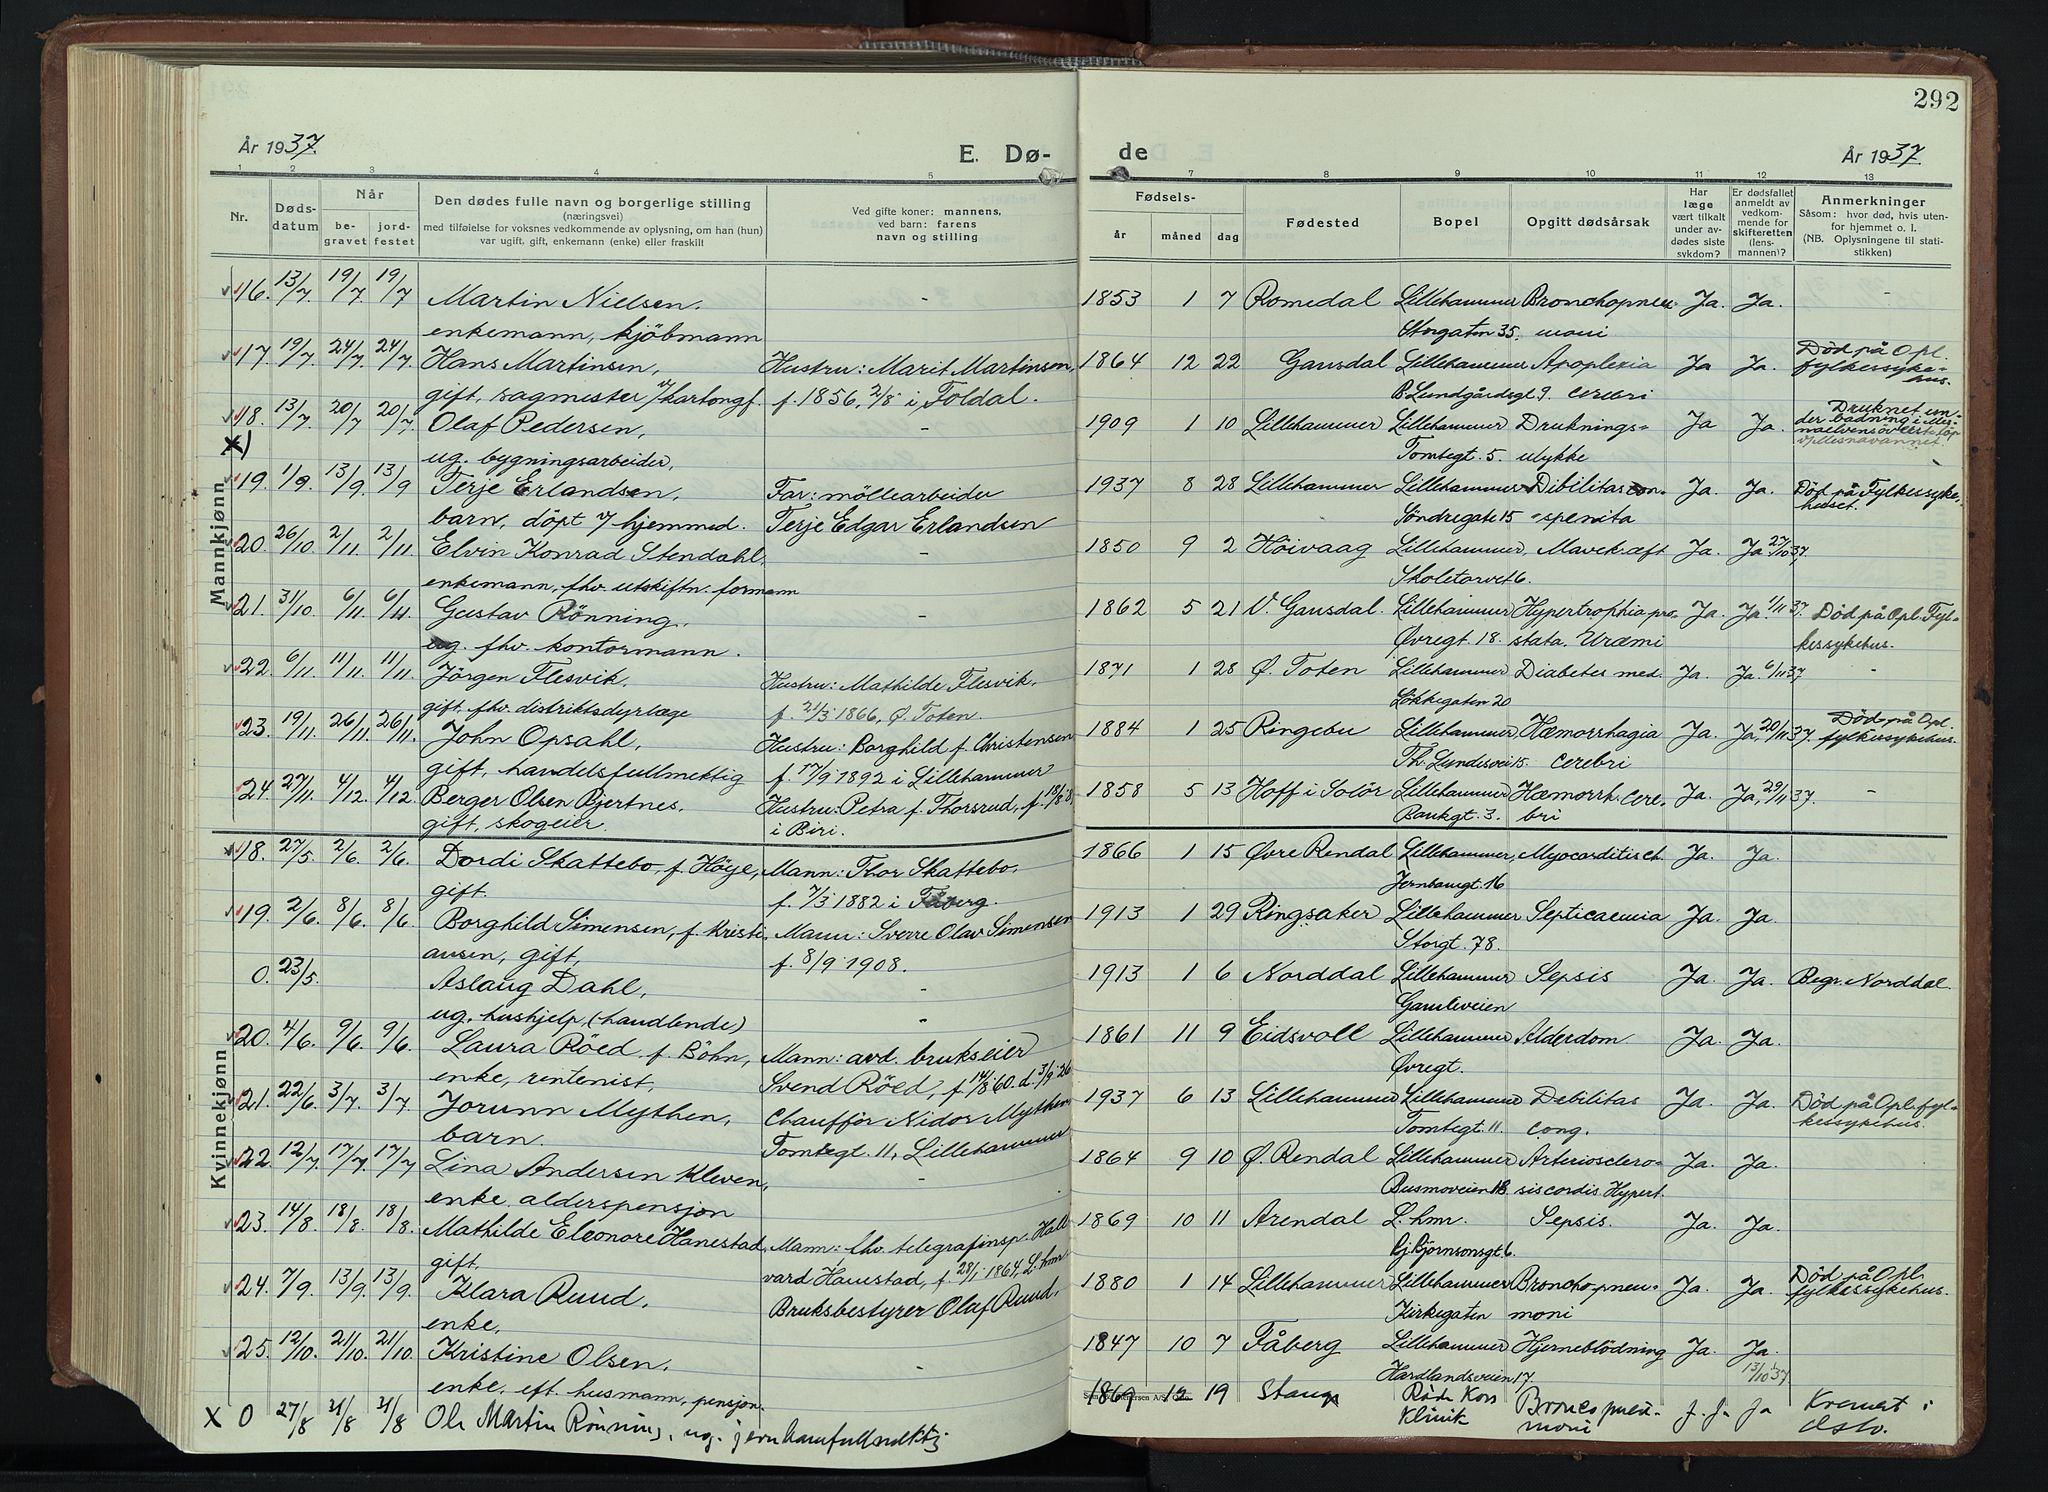 292
År 1937.
E. Dø-
de
År 1937
1 2 3 4 5 7 8 9 10 11 12 13
Nr.
Døds-
datum
Når
be-
gravet
jord-
festet
Den dødes fulle navn og borgerlige stilling
(næringsvei)
med tilføielse for voksnes vedkommende av oplysning, om han (hun)
var ugift, gift, enkemann (enke) eller fraskilt
Ved gifte koner: mannens,
ved barn: farens
navn og stilling
Fødsels-
år måned dag
Fødested
Bopel
Opgitt dødsårsak
Har
læge
vært tilkalt
under av-
dødes siste
sykdom?
Er dødsfallet
anmeldt av
vedkom-
mende for
skifteretten
(lens-
mannen)?
Anmerkninger
Såsom: hvor død, hvis uten-
for hjemmet o. l.
(NB. Oplysningene til stati-
stikken)
Mannkjønn
16. 13/7 19/7 19/7 Martin Nielsen. - 1853 1 7 Romedal Lillehammer Bronchopneu- Ja. Ja. -
enkemann, kjöbmann Storgaten 35. moni
17. 19/7 24/7 24/7 Hans Martinsen, Hustru: Marit Martinsen, 1864 12 22 Gausdal Lillehammer Apoplexia Ja Ja. Död på Opl.
fylkessyke-
hus.
gift, sagmester v/kartongf. f. 1856, 2/8 i Foldal. B. Lundgårdsgt 9. cerebri
18. 13/7 20/7 20/7 Olaf Pedersen, - 1909 1 10 Lillehammer Lillehammer Druknings- Ja Ja. Druknet un-
der badning i Mes-
naelvens överste löp
v/Mesnavannet.
x)
ug. bygningsarbeider, Tomtegt. 5. ulykke
19. 1/9 13/9 13/9 Terje Erlandsen, Far: möllearbeider 1937 8 28 Lillehammer Lillehammer Dibilitas con- Ja. Ja. Död på Fylkessyke-
huset.
barn, döpt v/ hjemmed. Terje Edgar Erlandsen Söndregate 15 -spenita
20 26/10 2/11 2/11. Elvin Konrad Stendahl, - 1850 9 2 Höivaag Lillehammer Mavekræft Ja. Ja 27/10 37.
enkemann, fhv. utskiftn. formann Skoletorvet 6.
21. 31/10 6/11 6/11 Gustav Rönning. - 1862 5 21 V. Gausdal. Lillehammer Hypertrophia pro- Ja. Ja. 1/11 37. Död på Opl. Fyl-
kessykehus.
ug. fhv. kontormann. Øvregt. 18. stata. Uræmi
22. 6/11 11/11. 11/11 Jörgen Flesvik. Hustru: Mathilde Flesvik. 1871 1 28 Ø. Toten Lillehammer Diabetes med. Ja. Ja. 6/11 37 -
gift, fhv. distriktsdyrlæge f. 21/3 1866, Ø. Toten. Lökkegaten 20
23. 19/11. 26/11 26/11. John Opsahl, Hustru: Borghild f. Christensen 1884 1 25 Ringebu Lillehammer Hæmorrhagia Ja. Ja, 20/11 37. Död på Opl.
fylkessykehus.
gift, handelsfullmektig f. 17/9 1892 i Lillehammer Th. Lundesvei 15. cerebri
24. 27/11. 4/12. 4/12. Berger Olsen Bjertnes. Hustru: Petra f. Thorsrud, f. 18/8 1858 5 13 Hoff i Solör Lillehammer Hæmorrh. cere- Ja. Ja, 29/11 37. -
gift, skogeier. i Biri. Bankgt. 3. bri
Kvinnekjønn
18. 27/5 2/6. 2/6. Dordi Skattebo, f. Höye, Mann: Thor Skattebo. 1866 1 15 Øvre Rendal Lillehammer, Myocarditis ch. Ja. Ja.
gift. f. 7/3 1882 i Fåberg. Jernbanegt. 16
19. 2/6. 8/6. 8/6. Borghild Simensen, f. Kristi- Mann: Sverre Olav Simensen 1913 1 29 Ringsaker Lillehammer Septicaemia Ja. Ja.
ansen, gift, f. 8/9 1908. Storgt. 78.
0. 23/5. Aslaug Dahl, - 1913 1 6 Norddal Lillehammer Sepsis Ja. Ja. Begr. Norddal.
ug. hushjelp, (handlende) - Gamleveien
20. 4/6. 9/6. 9/6 Laura Röed, f. Böhn, Mann: avd. brukseier 1861 11 9 Eidsvoll Lillehammer Alderdom Ja. Ja.
enke, rentenist, Svend Röed, f. 14/8 60. d. 3/9 26 Øvregt.
21. 22/6. 3/7. 3/7. Jorunn Mythen, Chaufför Nidor Mythen 1937 6 13 Lillehammer Lillehammer Debilitas Ja. Ja. Död på Opl. fyl-
kessykehus.
barn. Tomtegt. 11, Lillehammer Tomtegt. 11. cong.
22. 12/7 17/7 17/7 Lina Andersen Kleven, - 1864 9 10 Ø. Rendal Lillehammer Arteriosclero- Ja. Ja.
enke, alderspensjon Busmoveien 18 sis cordis. Hypert.
23. 14/8. 18/8. 18/8. Mathilde Eleonore Hanestad, Mann: fhv. telegrafinsp. Hall- 1869 10 11 Arendal L.hmr. Sepsis. Ja. Ja.
gift. vard Hanestad, f. 28/1 1864, L.hmr. Bj. Bjørnsonsgt. 6.
24. 7/9. 13/9. 13/9. Klara Ruud. Bruksbestyrer Olaf Ruud. 1880 1 14 Lillehammer Lillehammer Bronchopneu- Ja. Ja. Död på Opl.
fylkessykehus.
enke, Kirkegaten moni
25. 12/10. 21/10. 21/10 Kristine Olsen. - 1847 10 7 Fåberg Lillehammer Hjerneblödning Ja. Ja.
13/10 37
enke, eft. husmann, pensjon. Hardlandsveien 17.
X 0 27/8 31/8 31/8 Ole Martin Rönning, ug. jernvarefullmektig 1869 12 19 Stange Röde Kors Broncopneu- J. Ja Ja Kremert i
Klinik moni Oslo.